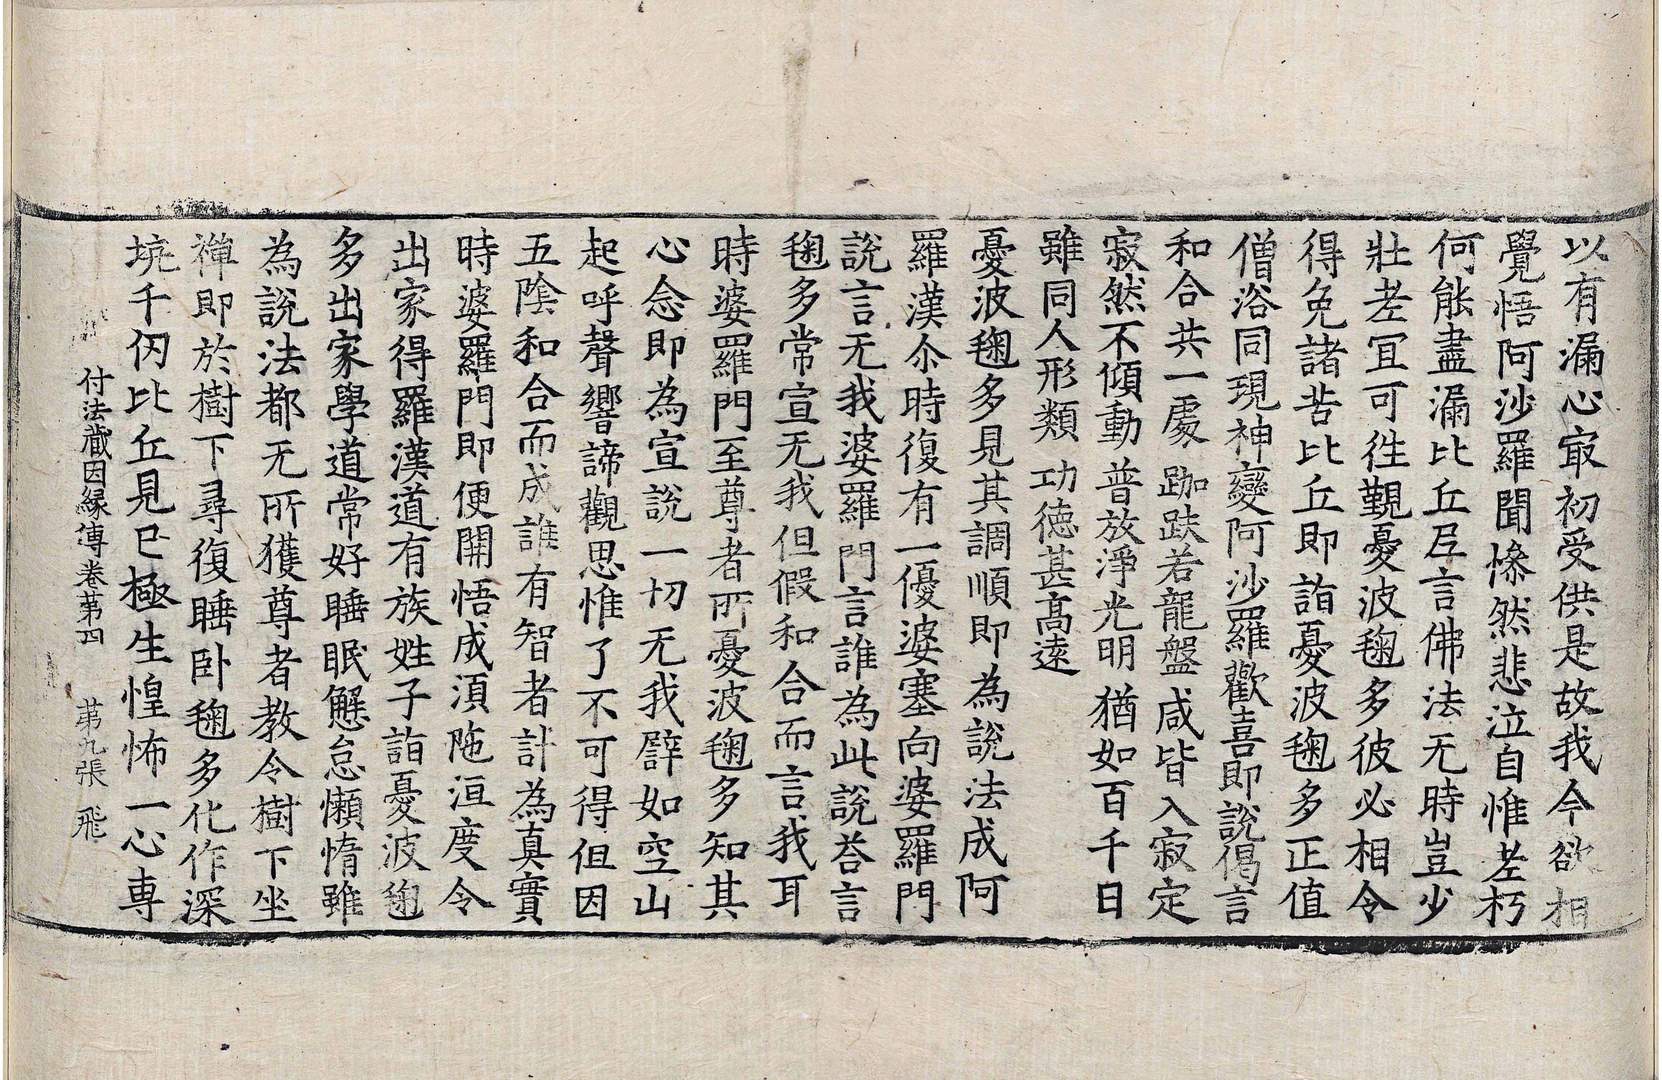 以有漏心冣初受供是故我今欲相
覺悟阿沙羅聞慘然悲泣自惟老朽
何能盡漏比丘尼言佛法无時豈少
壯老冝可徃覲憂波毱多彼必相令
得免諸苦比丘即詣憂波毱多正值
僧浴同現神變阿沙羅歡喜即說偈言
和合共一處　跏趺若龍盤　咸皆入寂定
寂然不傾動　普放淨光明　猶如百千日
雖同人形類　功德甚高遠
憂波毱多見其調順即為說法成阿
羅漢尒時復有一優婆塞向婆羅門
說言无我婆羅門言誰為此說荅言
毱多常宣无我但假和合而言我耳
時婆羅門至尊者所憂波毱多知其
心念即為宣說一切无我譬如空山
起呼聲響諦觀思惟了不可得但因
五陰和合而成誰有智者計為真實
時婆羅門即便開悟成湏陁洹度令
出家得羅漢道有族姓子詣憂波毱
多出家學道常好睡眠懈怠懶惰雖
為說法都无所獲尊者教令樹下坐
禪即於樹下尋復睡卧毱多化作深
坑千仞比丘見已極生惶怖一心專
付法藏因緣傳卷苐四　苐九張　飛